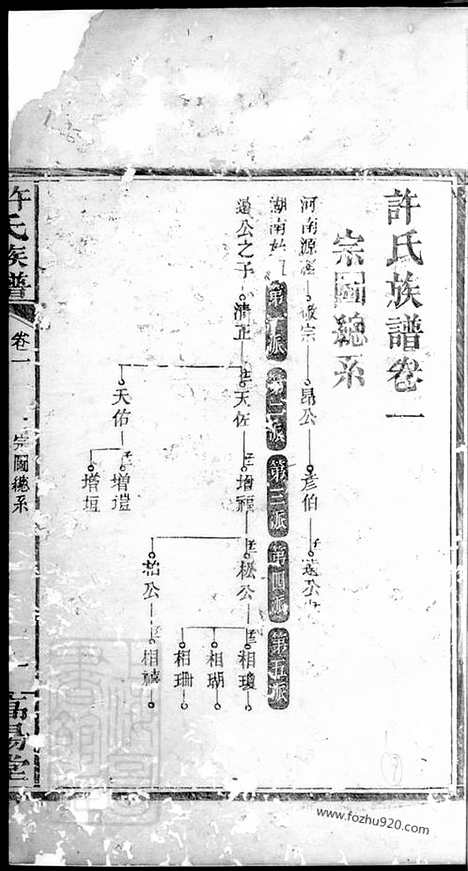 許氏族譜卷一
宗圖總系
河南源
宗
昂公
彦伯
遠公
湖南始
第一派
第二派
第三派
第四派
第五派
遠公之子
清正
天佐
增禧
松公
相瓊
相瑚
相珊
柏公
相禧
天佑
增塏
增垣
許氏族譜
卷一
宗圖總系
一
高陽堂
www.fozhu920.com